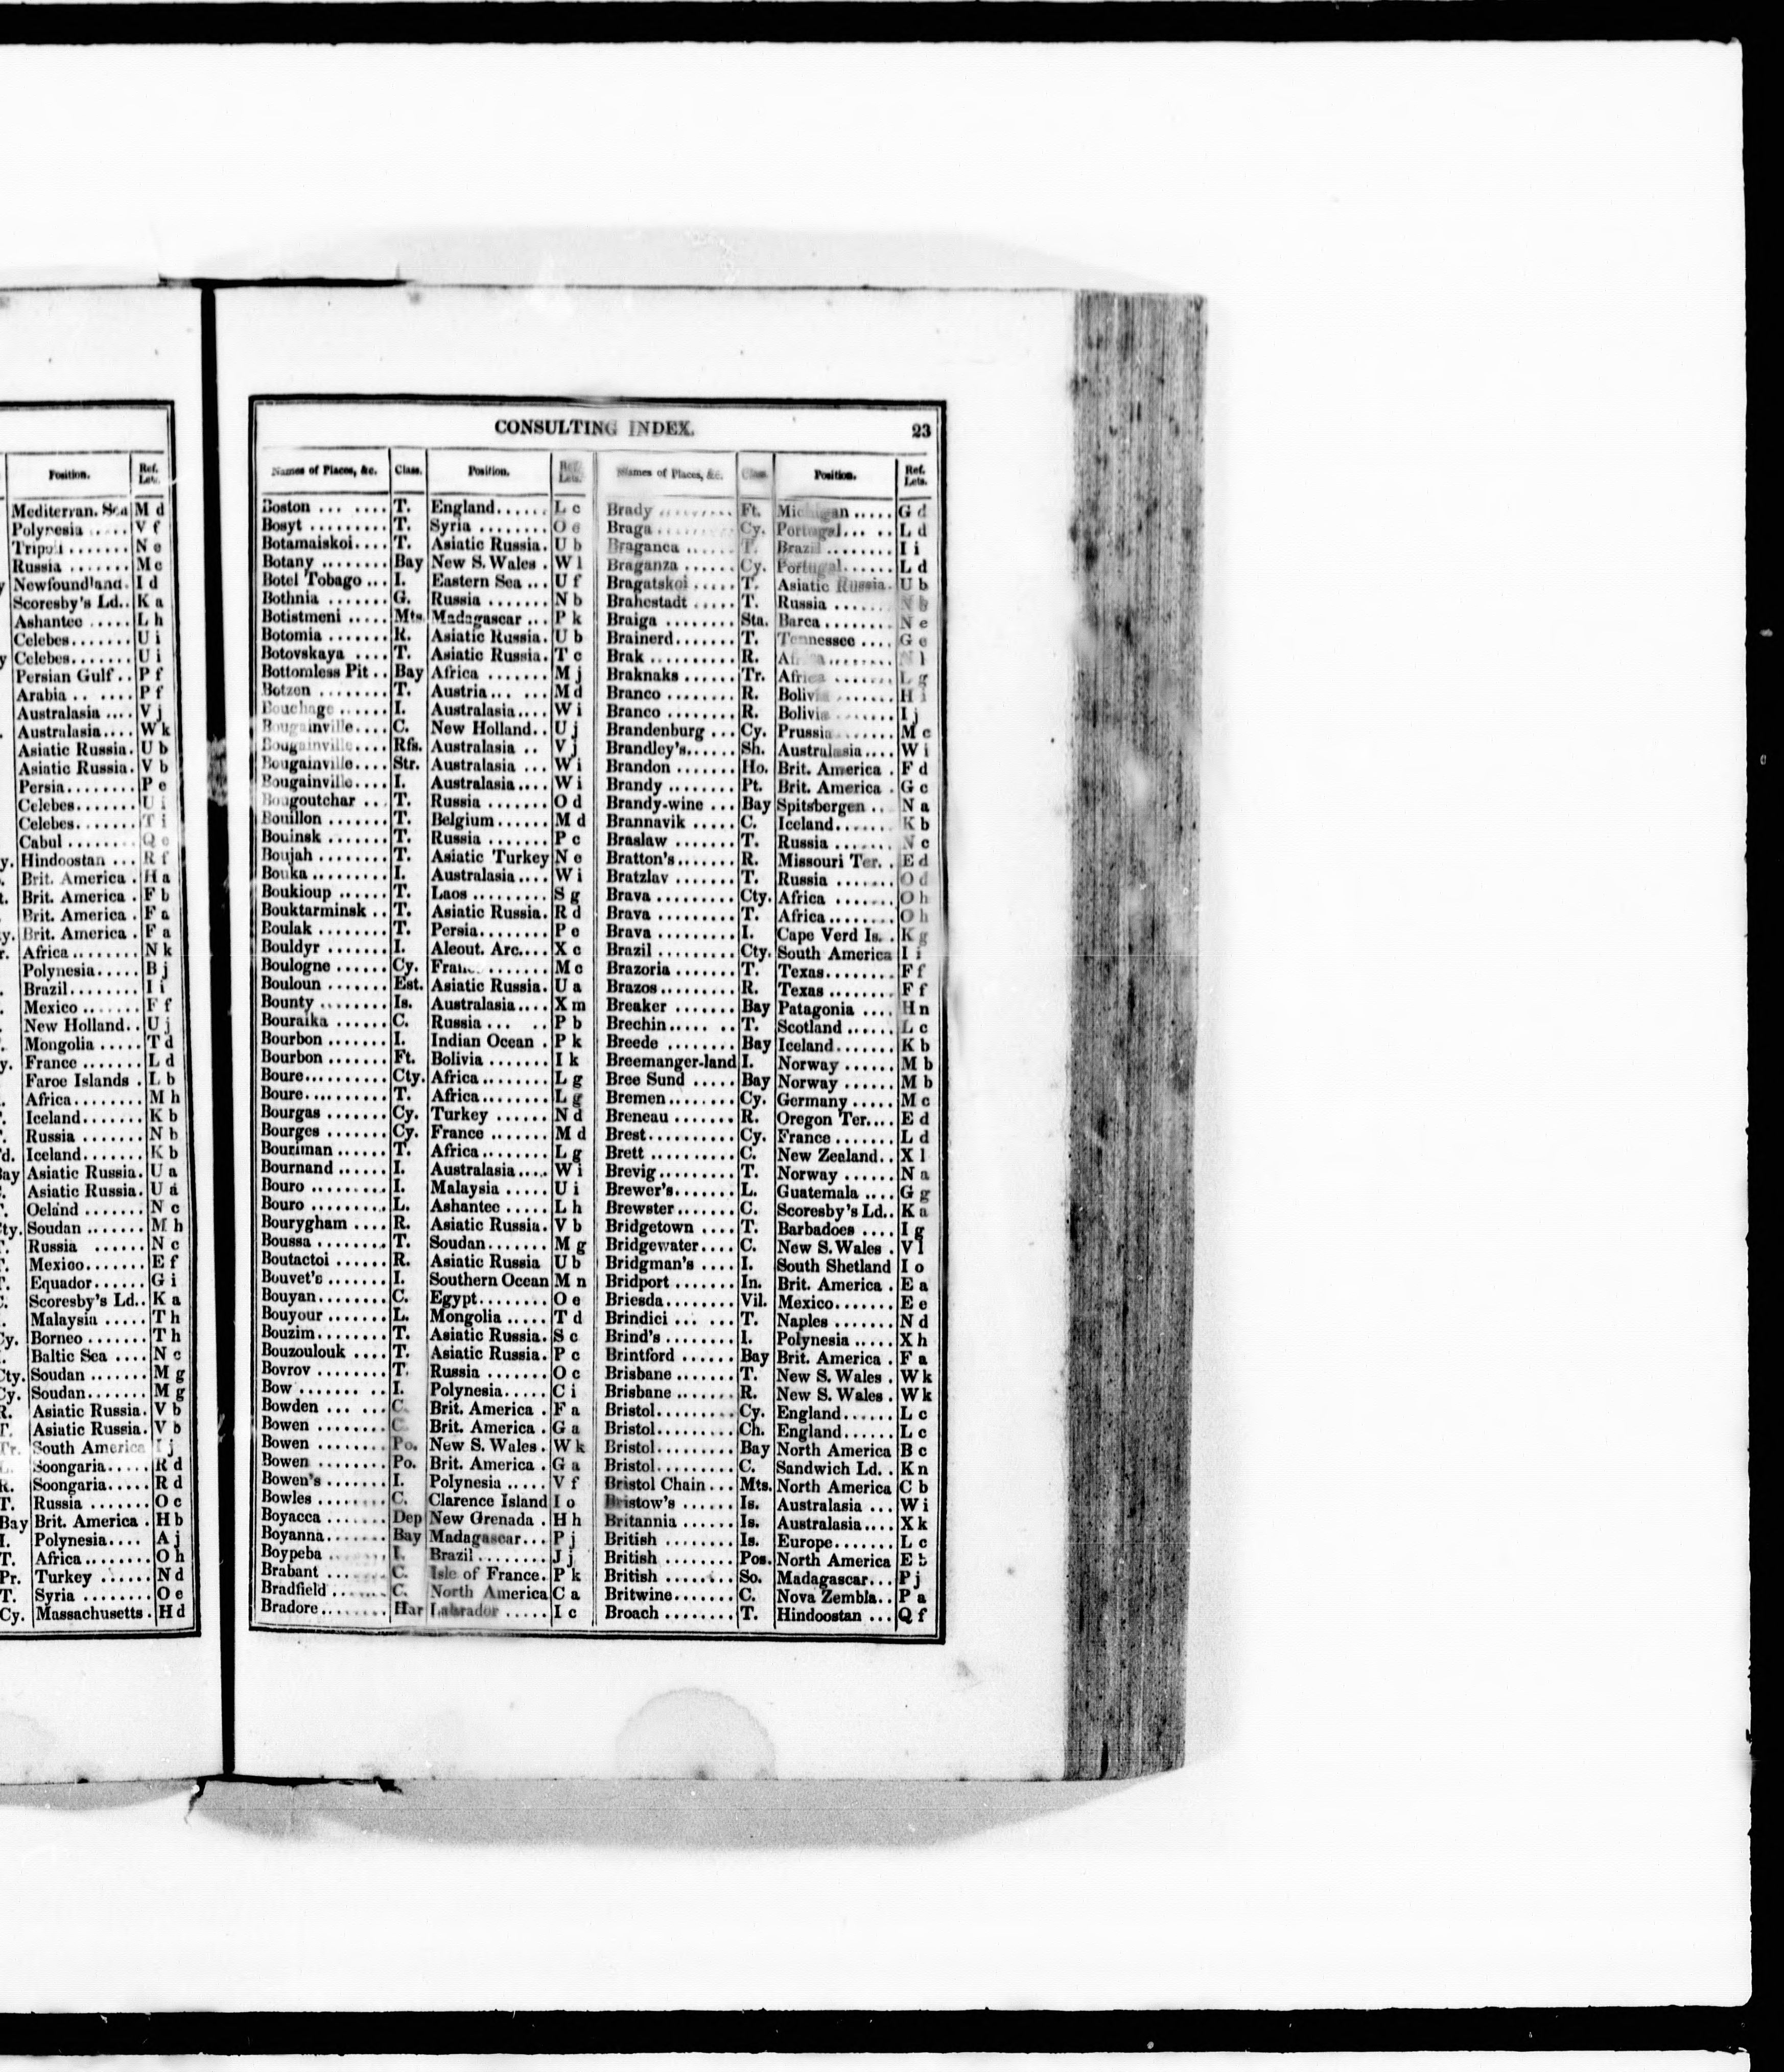 Position. Ref. Lets.
Mediterran. Sea M d
Polynesia V f
Tripoli N e
Russia M c
Newfoundland. I d
Scoresby's Ld.. K a
Ashantee L h
Celebes U i
y Celebes U i
Persian Gulf P f
Arabia P f
Australasia V j
Australasia W k
Asiatic Russia. U b
Asiatic Russia. V b
Persia P e
Celebes U i
Celebes T i
Cabul Q e
y. Hindoostan R f
Brit. America H a
t. Brit. America F b
Brit. America F a
y. Brit. America F a
r. Africa N k
Polynesia B j
Brazil I i
Mexico F f
New Holland U j
Mongolia T d
y. France L d
Faroe Islands L b
Africa M h
Iceland K b
Russia N b
d. Iceland K b
Bay Asiatic Russia. U a
Asiatic Russia. U a
Oeland N c
ty. Soudan M h
Russia N c
T. Mexico E f
T. Equador G i
C. Scoresby's Ld.. K a
Malaysia T h
Cy. Borneo T h
Baltic Sea N c
Cty. Soudan M g
Cy. Soudan M g
R. Asiatic Russia. V b
T. Asiatic Russia. V b
Tr. South America I j
L. Soongaria R d
R. Soongaria R d
T. Russia O c
Bay Brit. America H b
I. Polynesia A j
T. Africa O h
Pr. Turkey N d
T. Syria O e
Cy. Massachusetts H d
CONSULTING INDEX. 23
Names of Places, &c. Class. Position. Ref. Lets.
Boston T. England L c
Bosyt T. Syria O e
Botamaiskoi T. Asiatic Russia. U b
Botany Bay New S. Wales W l
Botel Tobago I. Eastern Sea U f
Bothnia G. Russia N b
Botistmeni Mts. Madagascar P k
Botomia R. Asiatic Russia. U b
Botovskaya T. Asiatic Russia. T c
Bottomless Pit Bay Africa M j
Botzen T. Austria M d
Bouchage I. Australasia W i
Bougainville C. New Holland U j
Bougainville Rfs. Australasia V j
Bougainville Str. Australasia W i
Bougainville I. Australasia W i
Bougoutchar T. Russia O d
Bouillon T. Belgium M d
Bouinsk T. Russia P c
Boujah T. Asiatic Turkey N e
Bouka I. Australasia W i
Boukioup T. Laos S g
Bouktarminsk T. Asiatic Russia. R d
Boulak T. Persia P e
Bouldyr I. Aleout. Arc. X c
Boulogne Cy. France M c
Bouloun Est. Asiatic Russia. U a
Bounty Is. Australasia X m
Bouraika C. Russia P b
Bourbon I. Indian Ocean P k
Bourbon Ft. Bolivia I k
Boure Cty. Africa L g
Boure T. Africa L g
Bourgas Cy. Turkey N d
Bourges Cy. France M d
Bouriman T. Africa L g
Bournand I. Australasia W i
Bouro I. Malaysia U i
Bouro L. Ashantee L h
Bourygham R. Asiatic Russia. V b
Boussa T. Soudan M g
Boutactoi R. Asiatic Russia U b
Bouvet's I. Southern Ocean M n
Bouyan C. Egypt O e
Bouyour L. Mongolia T d
Bouzim T. Asiatic Russia. S c
Bouzoulouk T. Asiatic Russia. P c
Bovrov T. Russia O c
Bow I. Polynesia C i
Bowden C. Brit. America F a
Bowen C. Brit. America G a
Bowen Po. New S. Wales W k
Bowen Po. Brit. America G a
Bowen's I. Polynesia V f
Bowles C. Clarence Island I o
Boyacca Dep New Grenada H h
Boyanna Bay Madagascar P j
Boypeba I. Brazil J j
Brabant C. Isle of France P k
Bradfield C. North America C a
Bradore Har Labrador I c
Names of Places, &c. Class. Position. Ref. Lets.
Brady Ft. Michigan G d
Braga Cy. Portugal L d
Braganca T. Brazil I i
Braganza Cy. Portugal L d
Bragatskoi T. Asiatic Russia. U b
Brahestadt T. Russia N b
Braiga Sta. Barca N e
Brainerd T. Tennessee G e
Brak R. Africa N l
Braknaks Tr. Africa L g
Branco R. Bolivia H i
Branco R. Bolivia I j
Brandenburg Cy. Prussia M c
Brandley's Sh. Australasia W i
Brandon Ho. Brit. America F d
Brandy Pt. Brit. America G c
Brandy-wine Bay Spitsbergen N a
Brannavik C. Iceland K b
Braslaw T. Russia N c
Bratton's R. Missouri Ter. E d
Bratzlav T. Russia O d
Brava Cty. Africa O h
Brava T. Africa O h
Brava I. Cape Verd Is. K g
Brazil Cty. South America I i
Brazoria T. Texas F f
Brazos R. Texas F f
Breaker Bay Patagonia H n
Brechin T. Scotland L c
Breede Bay Iceland K b
Breemanger-land I. Norway M b
Bree Sund Bay Norway M b
Bremen Cy. Germany M c
Breneau R. Oregon Ter. E d
Brest Cy. France L d
Brett C. New Zealand X l
Brevig T. Norway N a
Brewer's L. Guatemala G g
Brewster C. Scoresby's Ld.. K a
Bridgetown T. Barbadoes I g
Bridgewater C. New S. Wales V l
Bridgman's I. South Shetland I o
Bridport In. Brit. America E a
Briesda Vil. Mexico E e
Brindici T. Naples N d
Brind's I. Polynesia X h
Brintford Bay Brit. America F a
Brisbane T. New S. Wales W k
Brisbane R. New S. Wales W k
Bristol Cy. England L c
Bristol Ch. England L c
Bristol Bay North America B c
Bristol C. Sandwich Ld. K n
Bristol Chain Mts. North America C b
Bristow's Is. Australasia W i
Britannia Is. Australasia X k
British Is. Europe L c
British Pos. North America E b
British So. Madagascar P j
Britwine C. Nova Zembla P a
Broach T. Hindoostan Q f